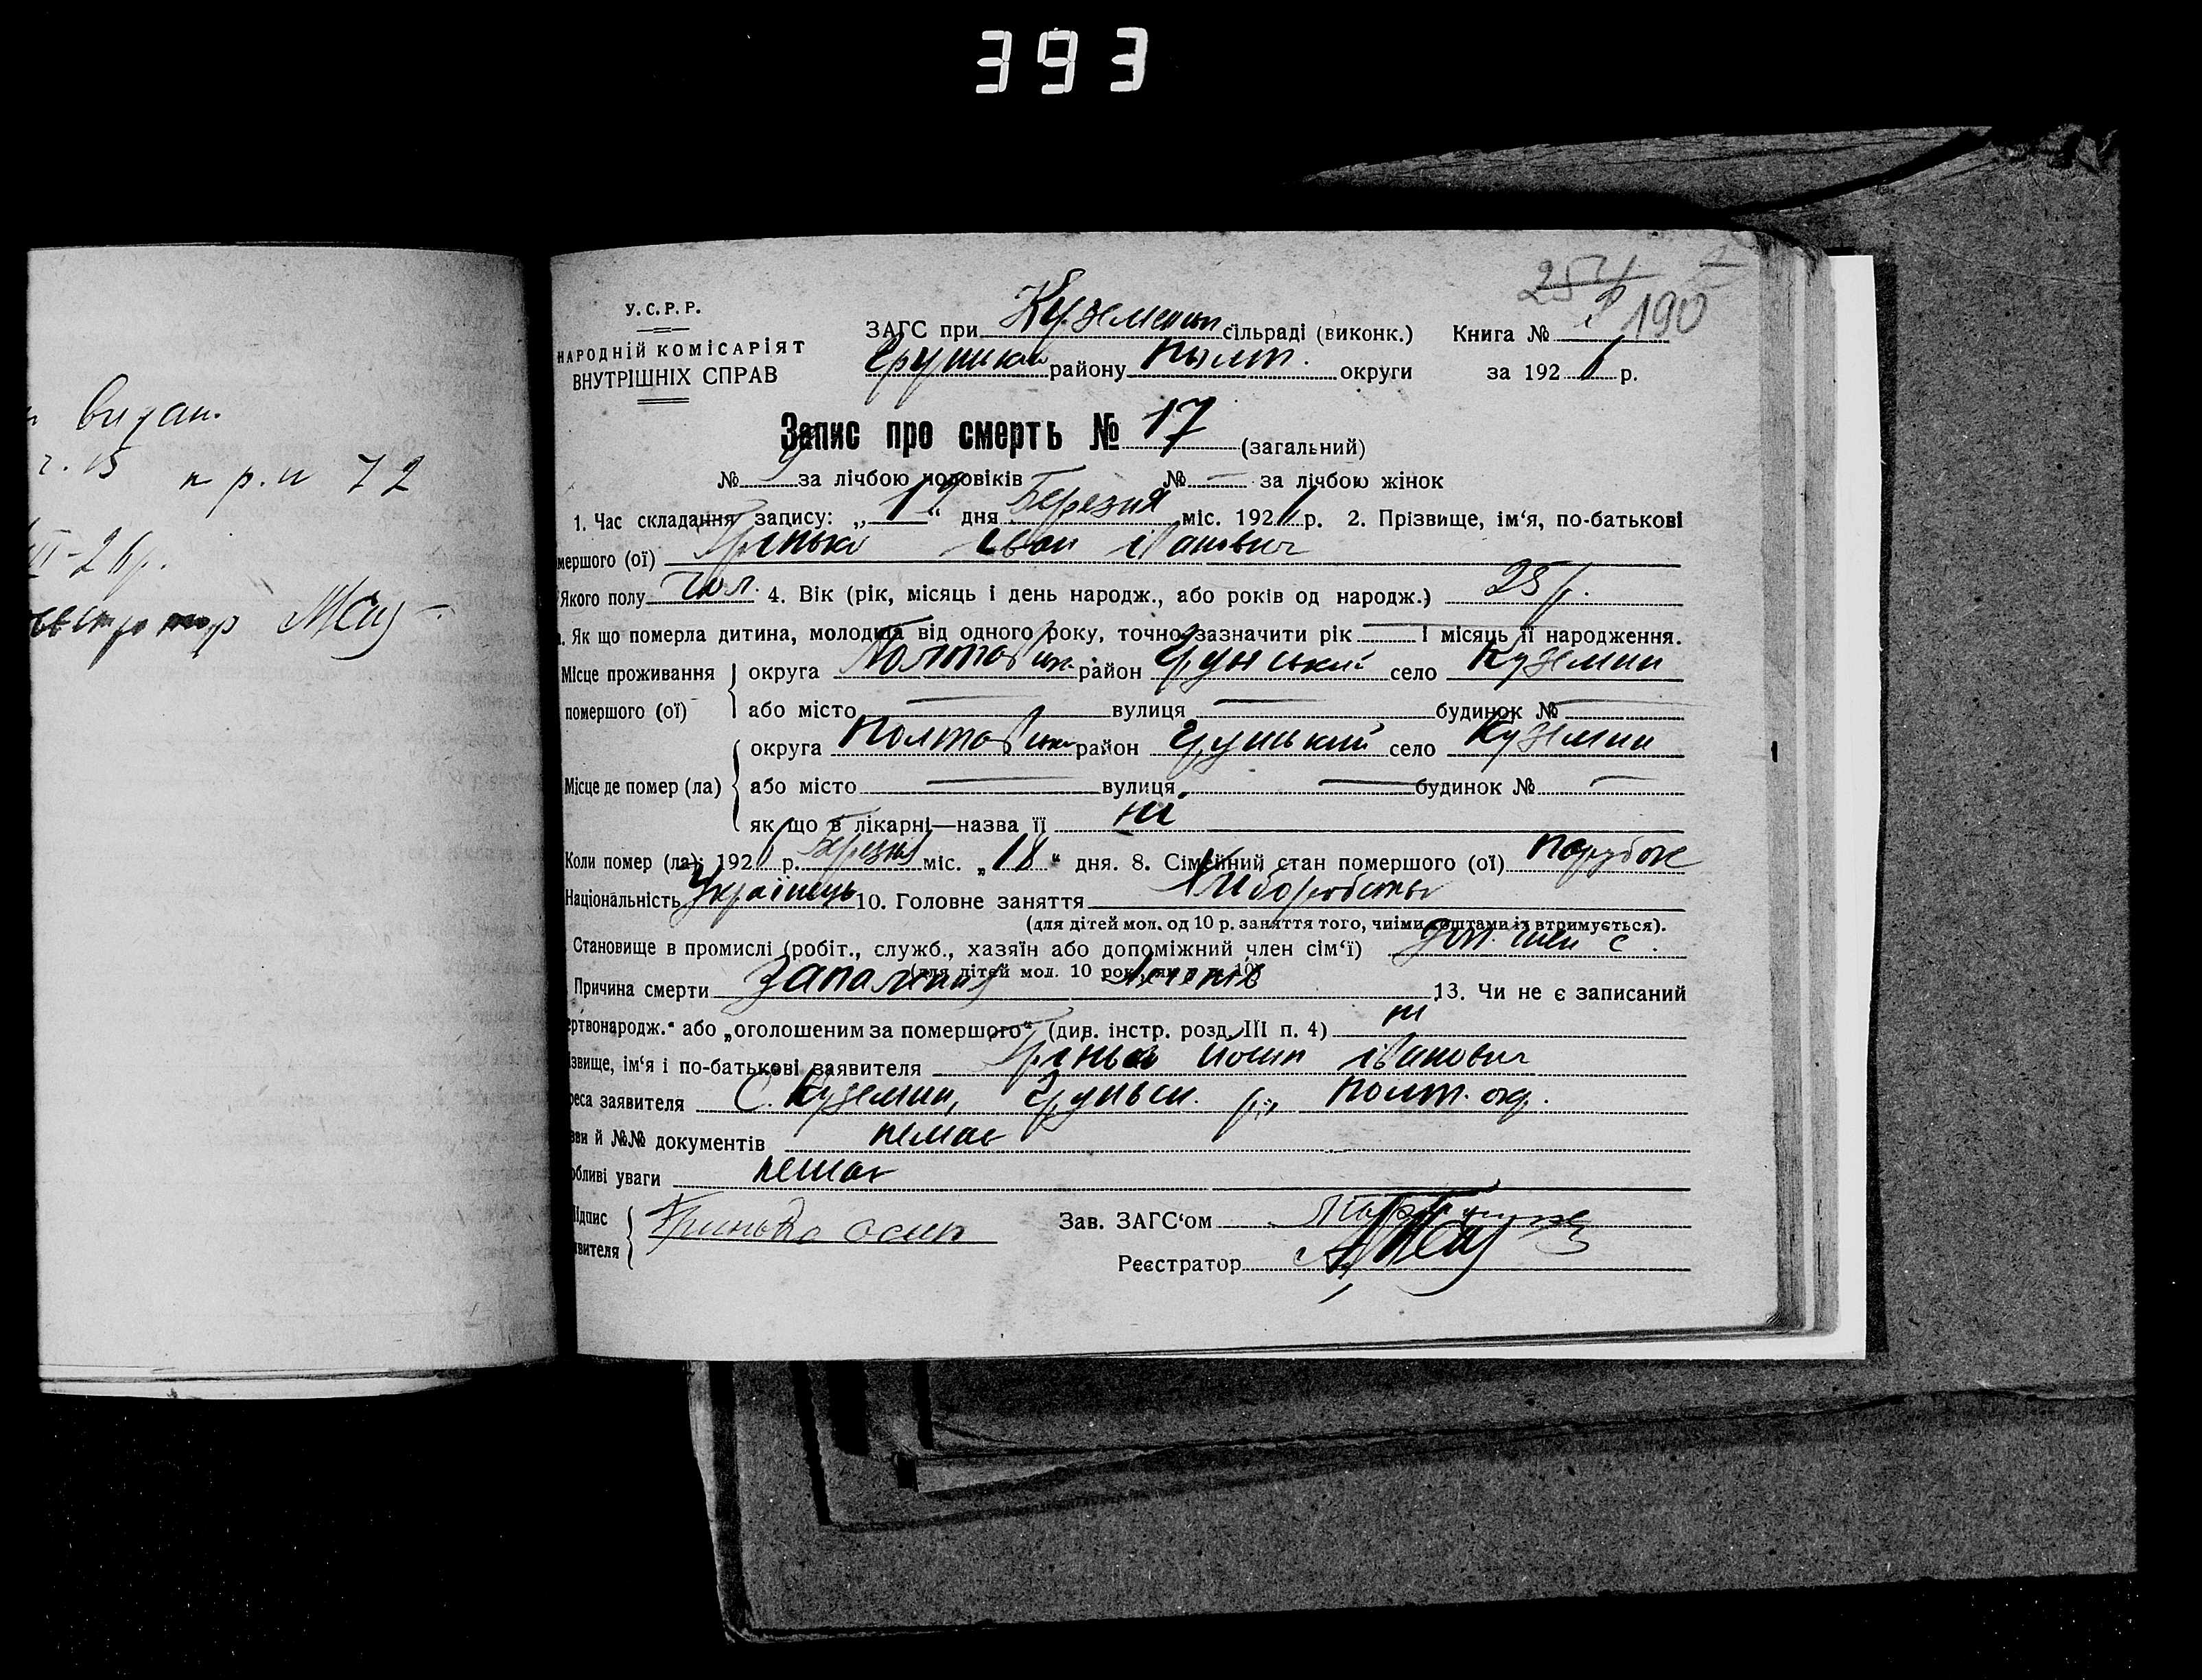 393
видан.
г. 15 п р. и 72
VI-26р.
У.С.Р.Р.
НАРОДНІЙ КОМІСАРІЯТ
ВНУТРІШНІХ СПРАВ
ЗАГС при Куземенськ сільраді (виконк.)
Грунськ району Полт. округи
Книга №
190
за 1926 р.
Запис про смерть № 17 (загальний)
№ 9 за лічбою чоловіків № — за лічбою жінок
1. Час складання запису: „19“ дня Березня міс. 1926 р. 2. Прізвище, ім‘я, по-батькові
мершого (ої) Грінько Іван Іванович
Якого полу чол. 4. Вік (рік, місяць і день народж., або років од народж.) 25 р.
. Як що померла дитина, молодша від одного року, точно зазначити рік — і місяць її народження.
Місце проживання округа Полтавськ район Грунський село Куземин
помершого (ої) або місто — вулиця — будинок № —
округа Полтавськ район Грунський село Куземин
Місце де помер (ла) або місто — вулиця — будинок № —
як що в лікарні—назва її ні
Коли помер (ла): 1926 р. Березня міс. „18“ дня. 8. Сімейний стан помершого (ої) парубок
Національність Українець 10. Головне заняття Хліборобство
(для дітей мол. од 10 р. заняття того, чиїми коштами їх втримується).
Становище в промислі (робіт., служб., хазяїн або допоміжний член сім‘ї) доп. член с.
(для дітей мол. 10 рок., як в п. 10)
Причина смерти Запалення легенів 13. Чи не є записаний
ертвонародж.“ або „оголошеним за помершого“ (див. інстр. розд. III п. 4) ні
ізвище, ім‘я і по-батькові заявителя Грінько Йосип Іванович
реса заявителя С. Куземин, Груньськ. р., Полт. окр.
зви й №№ документів немає
обливі уваги немає
Підпис Гринько осип Зав. ЗАГС‘ом
явителя
Реєстратор